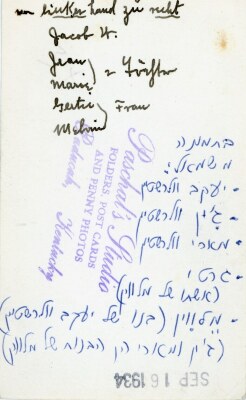 von linker hand zu recht
Jacob W.
Jean
Marie } 2 Töchter
Gertie } Frau
Melvin
Paschal's Studio
FOLDERS POST CARDS
AND PENNY PHOTOS
Paducah, Kentucky
בתמונה
משמאל:
- יעקב וולרשטיין
- ג'ין וולרשטיין
- מארי וולרשטיין
- גרטי
(אשתו של מלווין)
- מלווין (בנו של יעקב וולרשטיין)
(ג'ין ומארי הן הבנות של מלווין)
SEP 16 1934